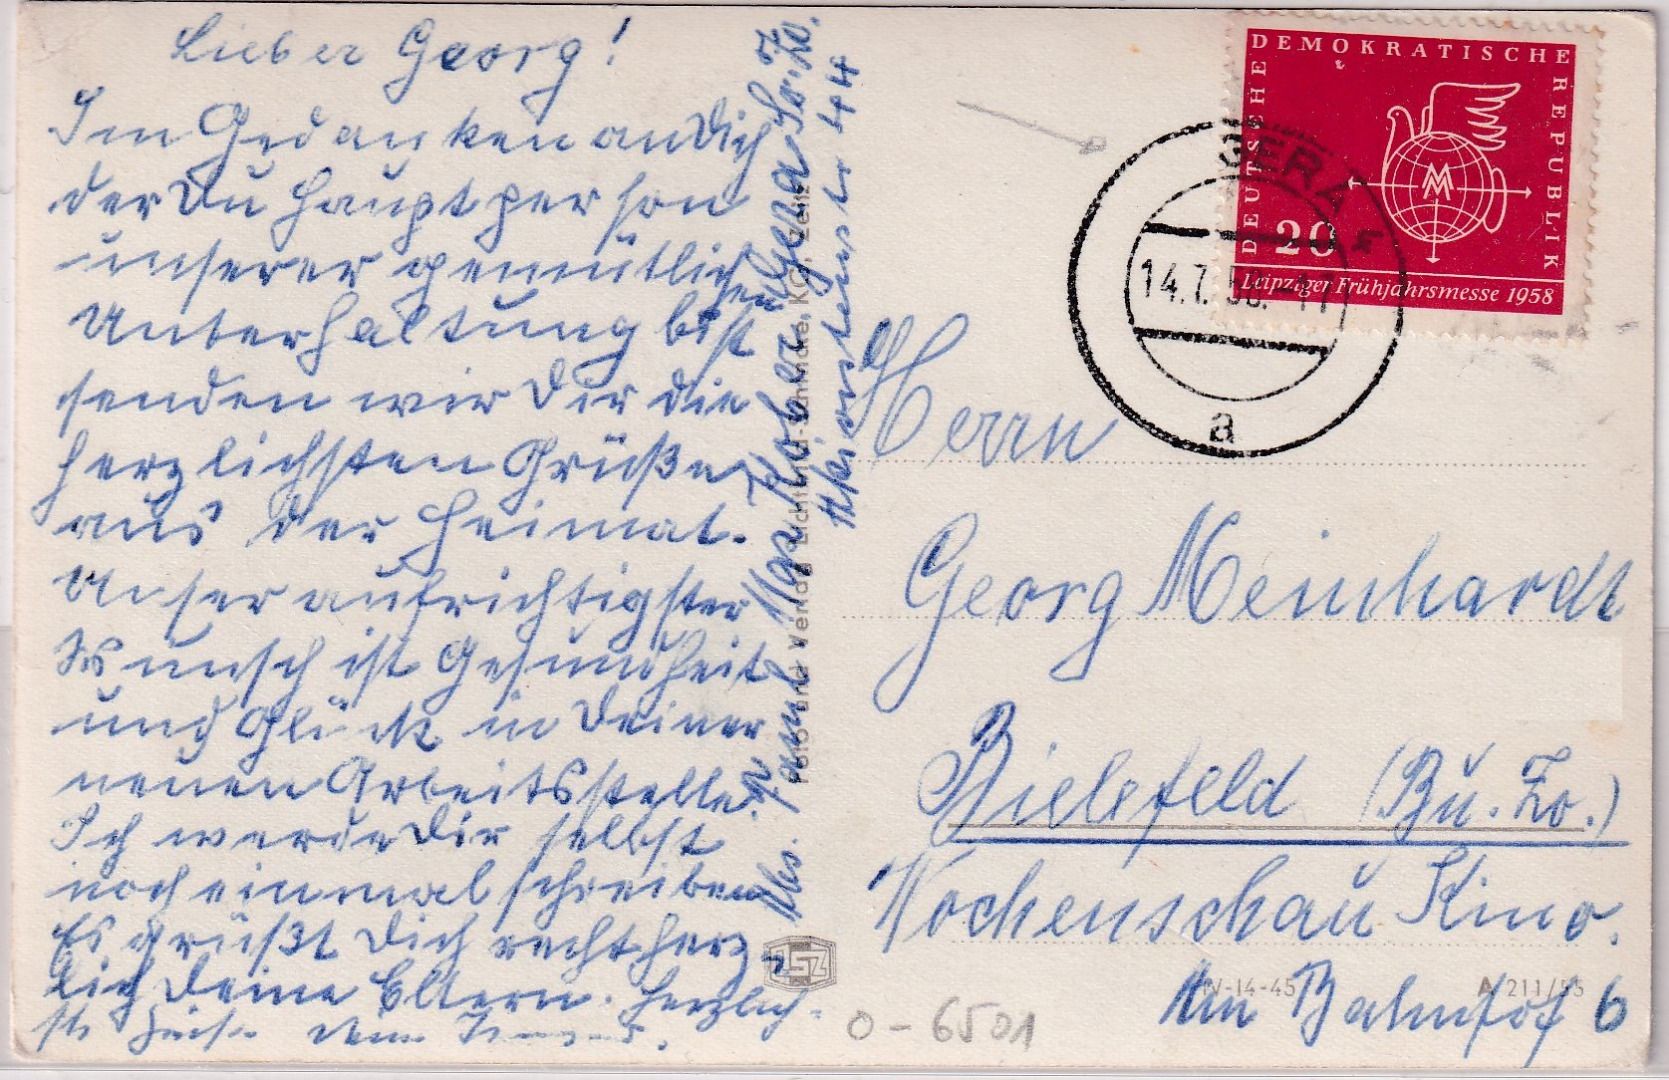 Lieber Georg!
Im Gedanken an Dich
der Du Hauptperson
unserer gemütlichen
Unterhaltung bist
senden wir Dir die
herzlichsten Grüße
aus der Heimat.
Unser aufrichtigster
Wunsch ist Gesundheit
und Glück in Deiner
neuen Arbeitsstelle.
Ich werde Dir selbst
noch einmal schreiben
Es grüßt Dich recht herz-
lich Deine Eltern. Herzlich-
ste
Gera
44
Foto und Verlag Lichtbild-Schincke, KG., Zeitz
DEUTSCHE DEMOKRATISCHE REPUBLIK
MM
20
Leipziger Frühjahrsmesse 1958
GERA
14.7.58.-17
a
Herrn
Georg Meinhardt
Bielefeld (Bu. Zo.)
Wochenschau Kino.
Am Bahnhof 6
IV-14-45
A 211/55
LSZ
O-6501